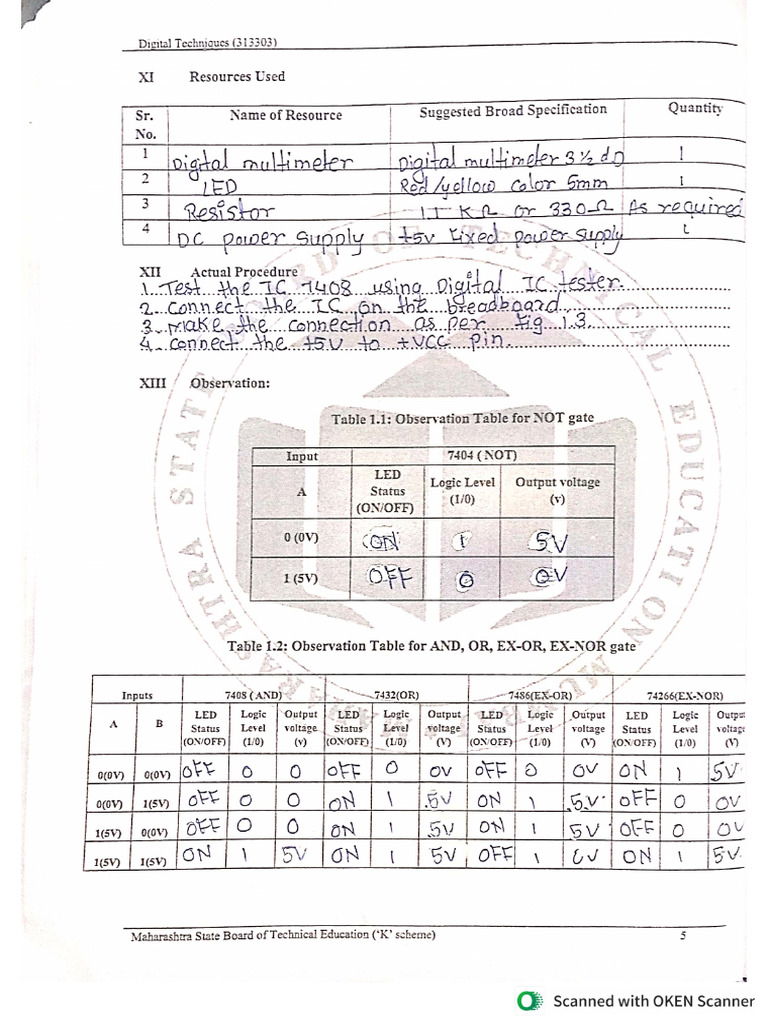 Digital Techniques (313303)
XI Resources Used
Sr. No. Name of Resource Suggested Broad Specification Quantity
1 Digital multimeter Digital multimeter 3 ½ d D 1
2 LED Red/yellow color 5mm 1
3 Resistor 1 KΩ or 330Ω As required
4 DC power supply +5v Fixed power supply 1
XII Actual Procedure
1. Test the IC 7408 using Digital IC tester.
2. Connect the IC on the breadboard.
3. Make the connection as per fig 1.3.
4. Connect the +5V to +VCC pin.
XIII Observation:
Table 1.1: Observation Table for NOT gate
Input 7404 ( NOT)
A LED Status (ON/OFF) Logic Level (1/0) Output voltage (v)
0 (0V) ON 1 5V
1 (5V) OFF 0 0V
Table 1.2: Observation Table for AND, OR, EX-OR, EX-NOR gate
Inputs 7408 ( AND) 7432(OR) 7486(EX-OR) 74266(EX-NOR)
A B LED Status (ON/OFF) Logic Level (1/0) Output voltage (v) LED Status (ON/OFF) Logic Level (1/0) Output voltage (V) LED Status (ON/OFF) Logic Level (1/0) Output voltage (V) LED Status (ON/OFF) Logic Level (1/0) Output voltage (V)
0(0V) 0(0V) OFF 0 0 OFF 0 0V OFF 0 0V ON 1 5V
0(0V) 1(5V) OFF 0 0 ON 1 5V ON 1 5V OFF 0 0V
1(5V) 0(0V) OFF 0 0 ON 1 5V ON 1 5V OFF 0 0V
1(5V) 1(5V) ON 1 5V ON 1 5V OFF 1 0V ON 1 5V
Maharashtra State Board of Technical Education ('K' scheme) 5
MAHARASHTRA STATE BOARD OF TECHNICAL EDUCATION MUMBAI
Scanned with OKEN Scanner